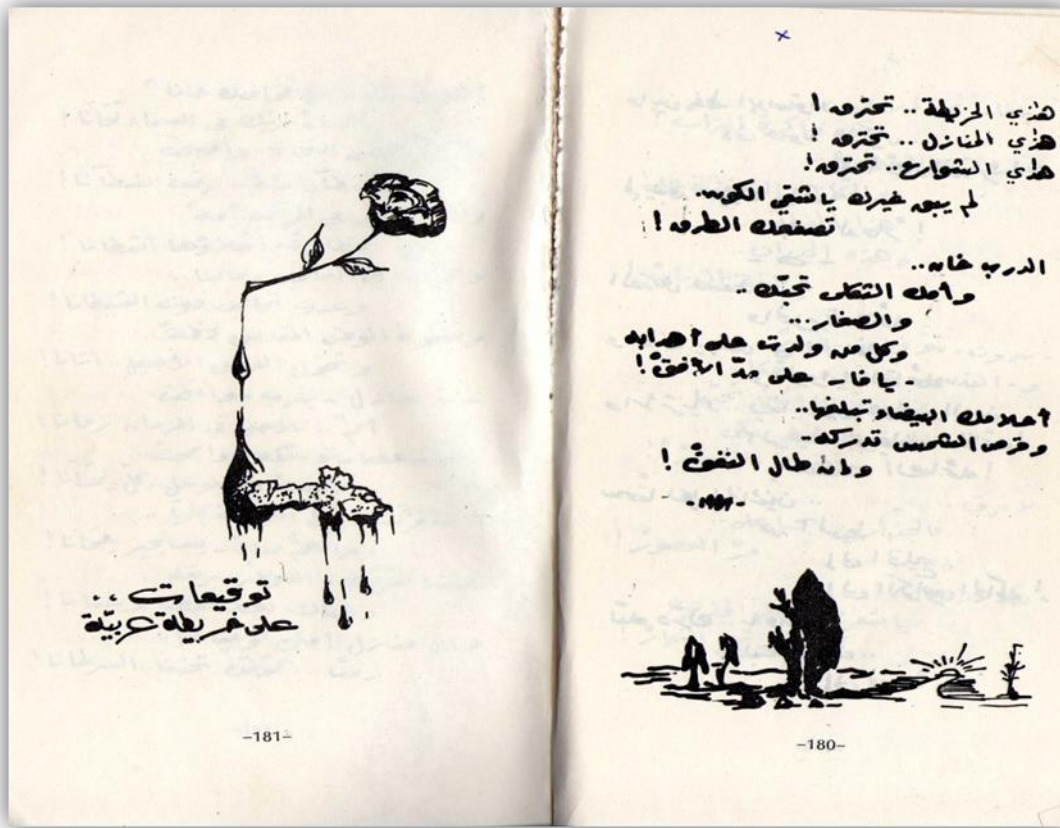 هذي الخريطة .. تحترق!
هذي المنازل .. تحترق!
هذي الشوارع .. تحترق!
لم يبق غيرك يا شقي الكون.
تصفعك الطرق!
الدرب خان ..
وأمك الثكلى تحبّك ..
والصغار ..
وكل من ولدت على أهدابه
- يا فارس على مدّ الأفقْ!
أحلامك البيضاء تبلغها ..
وقرص الشمس تدركه -
وإن طال النفقْ!
-180-
توقيعات ..
على خريطة عربيّة
-181-